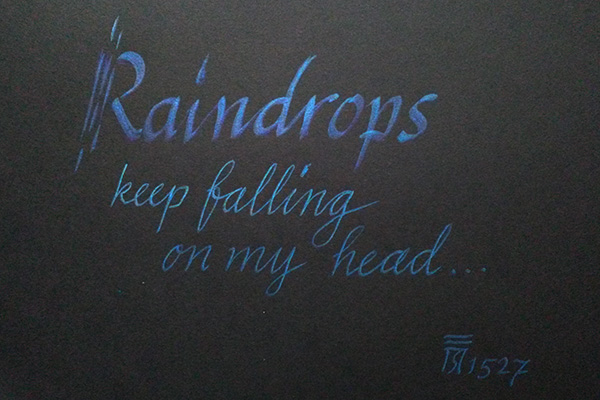 Raindrops
keep falling
on my head...
1527